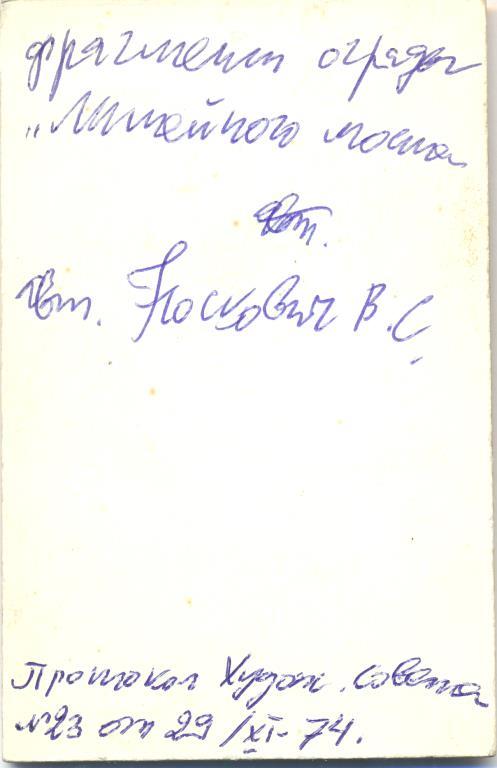 фрагмент ограды
„Литейного моста
авт.
авт. Носкович В. С.
Протокол Худож. Совета
№23 от 29/XI-74.